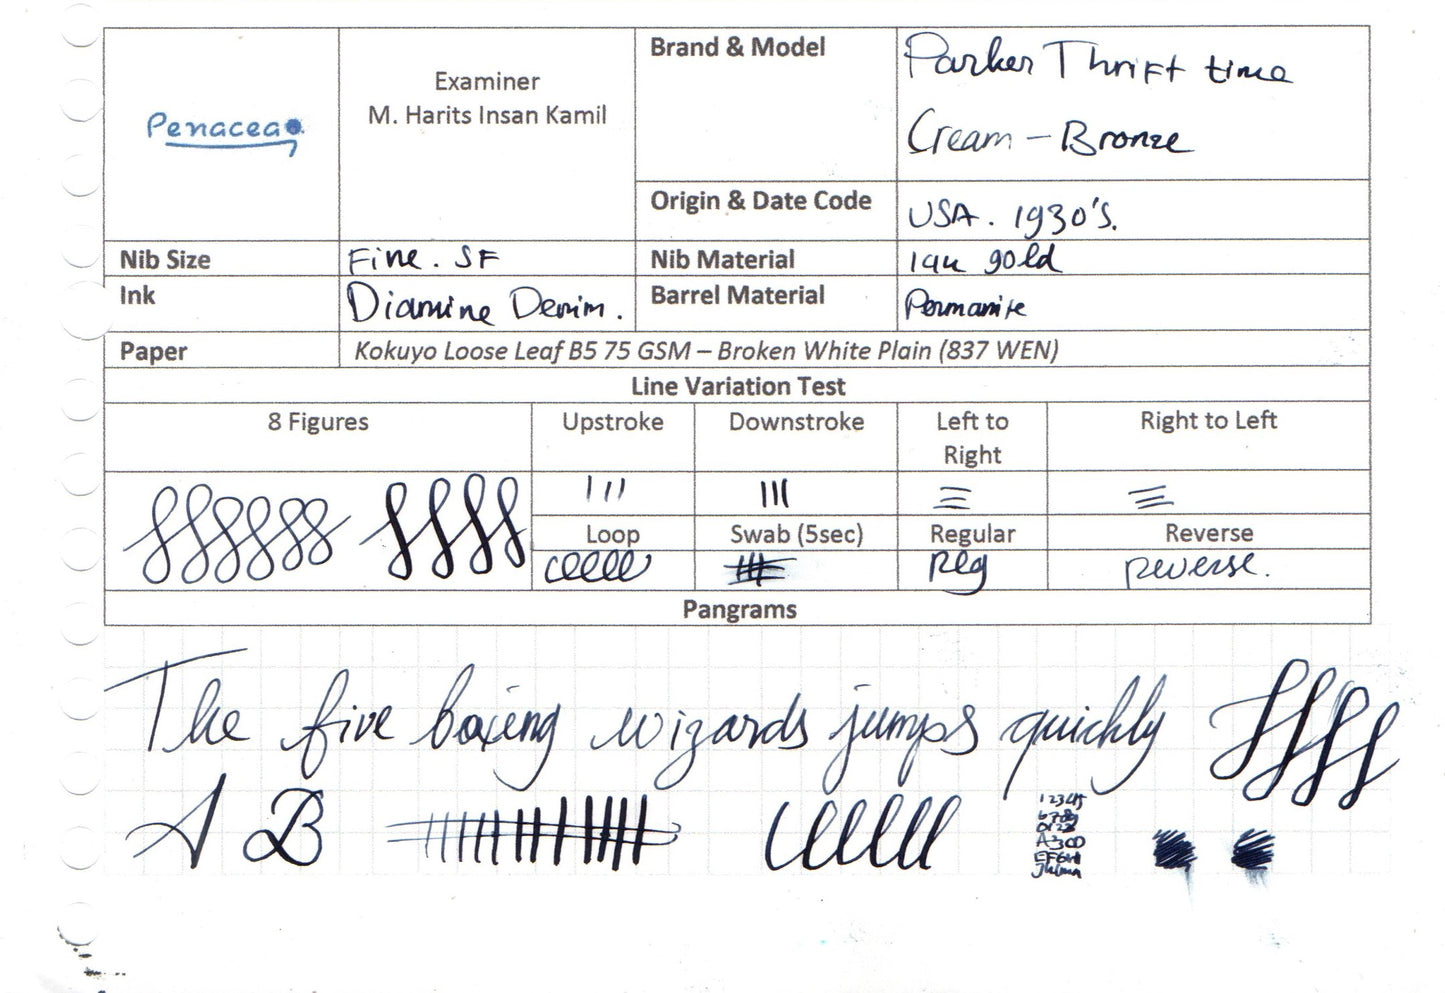 Penacea
Examiner
M. Harits Insan Kamil
Brand & Model
Parker Thrift time
Cream - Bronze
Origin & Date Code
USA. 1930's.
Nib Size
Fine. SF
Nib Material
14k gold
Ink
Diamine Denim.
Barrel Material
Permanite
Paper
Kokuyo Loose Leaf B5 75 GSM – Broken White Plain (837 WEN)
Line Variation Test
8 Figures
Upstroke
Downstroke
Left to
Right
Right to Left
Loop
Swab (5sec)
Regular
Reverse
Reg
reverse.
Pangrams
The five boxing wizards jumps quickly
A B